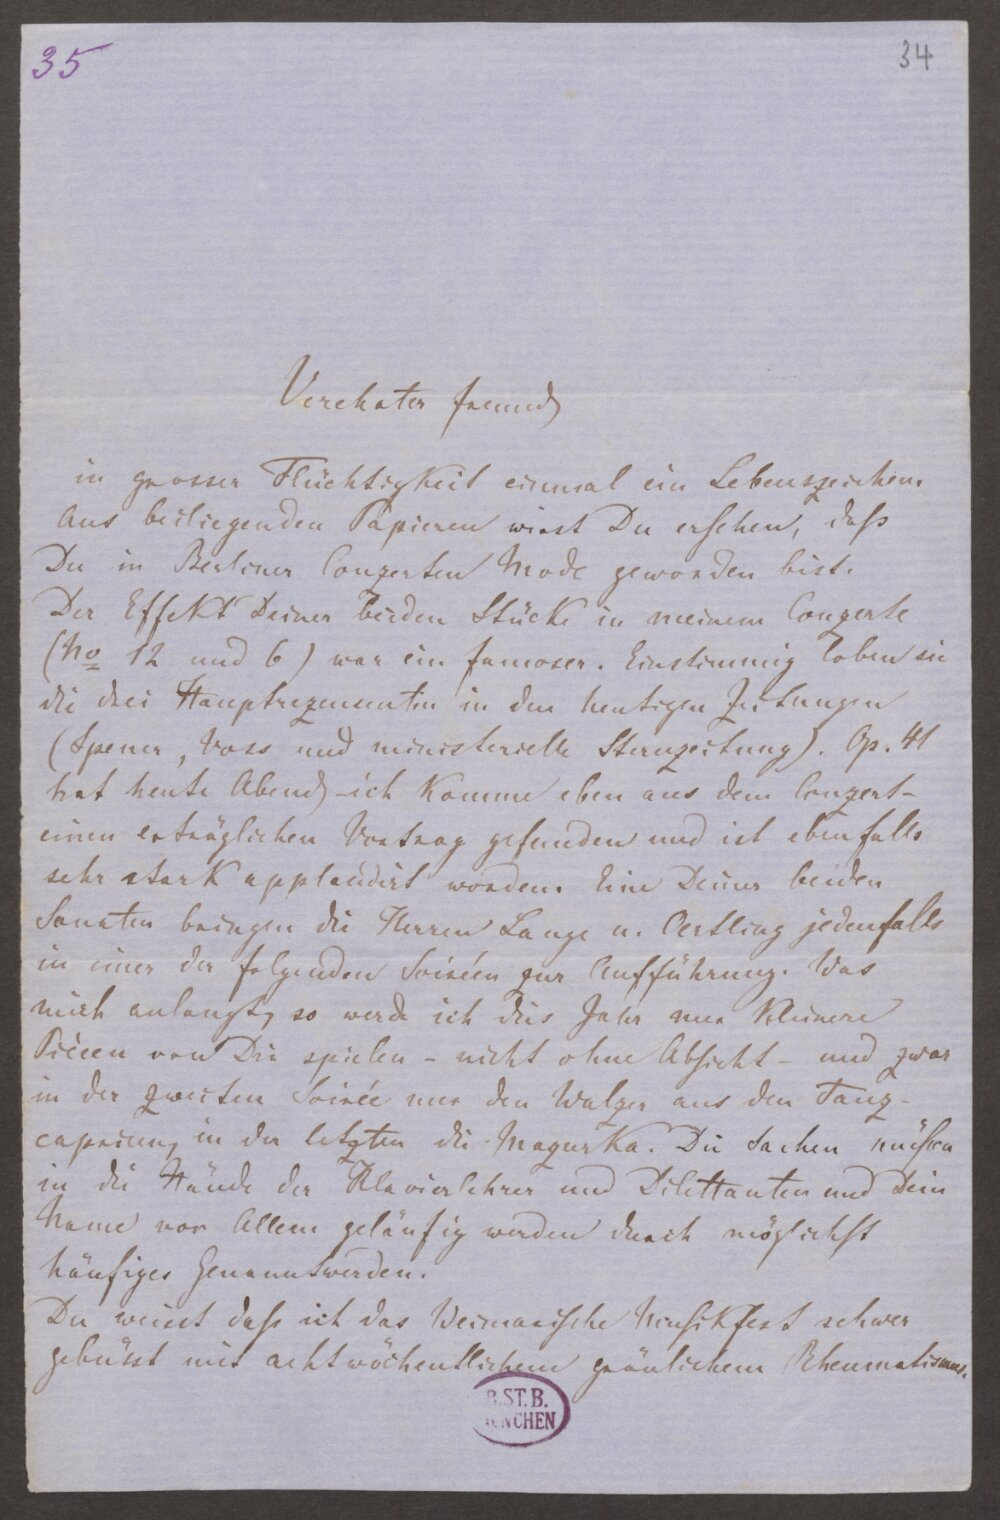 35
34
Verehrter Freund
in grosser Flüchtigkeit einmal ein Lebenszeichen.
Aus beiliegenden Papieren wirst Du ersehen, dass
Du in Berliner Conzerten Mode geworden bist.
Der Effekt Deiner beiden Stücke in meinem Conzerte
(No 12 und 6) war ein famoser. Einstimmig loben sie
die drei Hauptrezensenten in den heutigen Zeitungen
(Spener, Voss und ministerielle Sternzeitung). Op. 41
hat heute Abend – ich komme eben aus dem Conzert –
einen erträglichen Vortrag gefunden und ist ebenfalls
sehr stark applaudirt worden. Eine Deiner beiden
Sonaten bringen die Herren Lange u. Oertling jedenfalls
in einer der folgenden Soiréen zur Aufführung. Was
mich anlangt, so werde ich dies Jahr nur kleinere
Piècen von Dir spielen – nicht ohne Absicht – und zwar
in der zweiten Soirée nur den Walzer aus den Tanz-
capricen, in der letzten die Mazurka. Die Sachen müssen
in die Hände der Klavierlehrer und Dilettanten und Dein
Name vor Allem geläufig werden durch möglichst
häufiges Genanntwerden.
Du weisst dass ich das Weimarische Musikfest schwer
gebüsst mit achtwöchentlichem gräulichem Rheumatismus.
B.ST.B.
MÜNCHEN